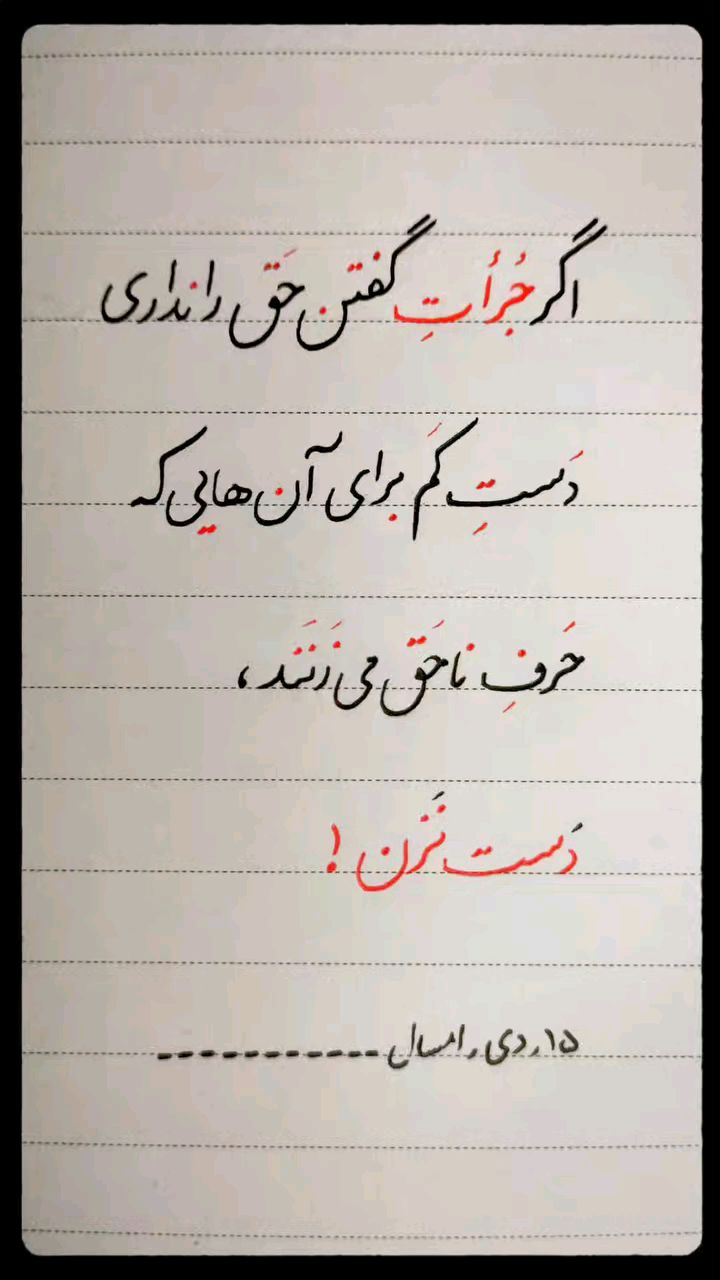 اگر جُرأتِ گفتن حَق را نداری
دَستِ کَم برای آن هایی که
حَرفِ ناحَق می زَنَند،
دَست نَزن !
۱۵, دی, امسال -----------